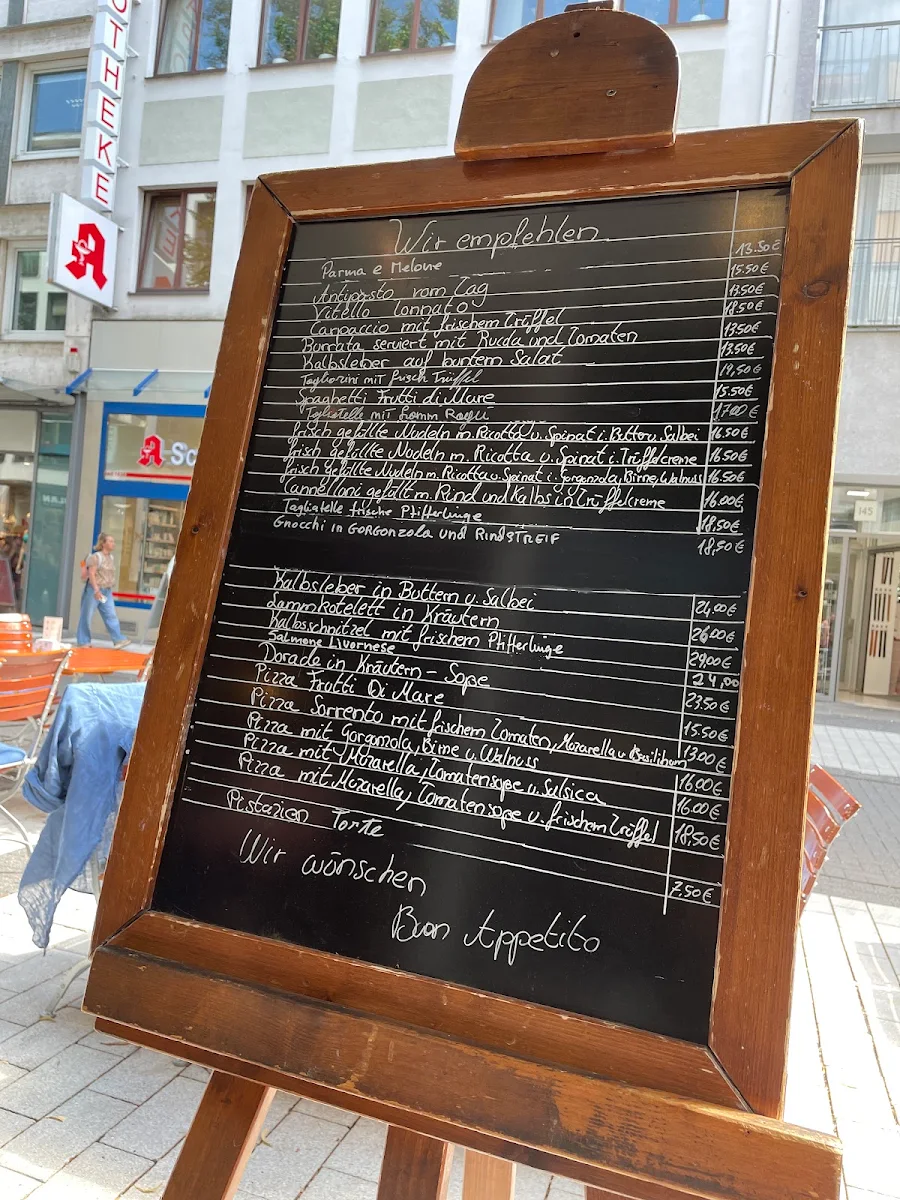 OTHEKE
A
Sc
145
Wir empfehlen
Parma e Melone 13.50€
Antipasto vom Tag 15.50€
Vitello Tonnato 13.50€
Carpaccio mit frischem Trüffel 18.50€
Burrata serviert mit Rucola und Tomaten 13.50€
Kalbsleber auf buntem Salat 13.50€
Tagliorini mit frisch Trüffel 19,50€
Spaghetti Frutti di Mare 15.50€
Tagliatelle mit Lamm Ragu 17.00€
frisch gefüllte Nudeln m. Ricotta u. Spinat i. Butter u. Salbei 16.50€
frisch gefüllte Nudeln m. Ricotta u. Spinat i. Trüffelcreme 16.50€
frisch gefüllte Nudeln m. Ricotta u. Spinat i. Gorgonzola, Birne, Walnuss 16.50€
Cannelloni gefült m. Rind und Kalbs in Trüffelcreme 16.00€
Tagliatelle frische Pfifferlinge 18,50€
Gnocchi in GORGONZOLA und RindSTREIF 18,50€
Kalbsleber in Buttern u. Salbei 24,00€
Lammkotelett in Kräutern 26,00€
Kalbsschnitzel mit frischem Pfifferlinge 29,00€
Salmone Livornese 24,00
Dorade in Kräutern - Soße 23.50€
Pizza Frutti Di Mare 15.50€
Pizza Sorrento mit frischem Tomaten, Mozarella u Basilikum 13.00€
Pizza mit Gorgonzola, Birne u. Walnuss 16.00€
Pizza mit Mozarella, Tomatensoße u. Salsica 16.00€
Pizza mit Mozarella, Tomatensoße u. frischem Trüffel 18,50€
Pistazien Torte 7.50€
Wir wünschen
Buon Appetito